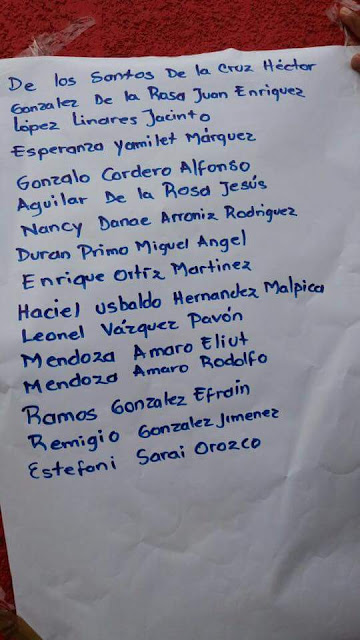 De los Santos De la Cruz Héctor
Gonzalez De la Rasa Juan Enriquez
López Linares Jacinto
Esperanza Yamilet Márquez
Gonzalo Cordero Alfonso
Aguilar De la Rosa Jesús
Nancy Danae Arroniz Rodriguez
Duran Primo Miguel Angel
Enrique Ortíz Martinez
Haciel Usbaldo Hernandez Malpica
Leonel Vázquez Pavón
Mendoza Amaro Eliut
Mendoza Amaro Rodolfo
Ramos Gonzalez Efrain
Remigio Gonzalez Jimenez
Estefani Sarai Orozco